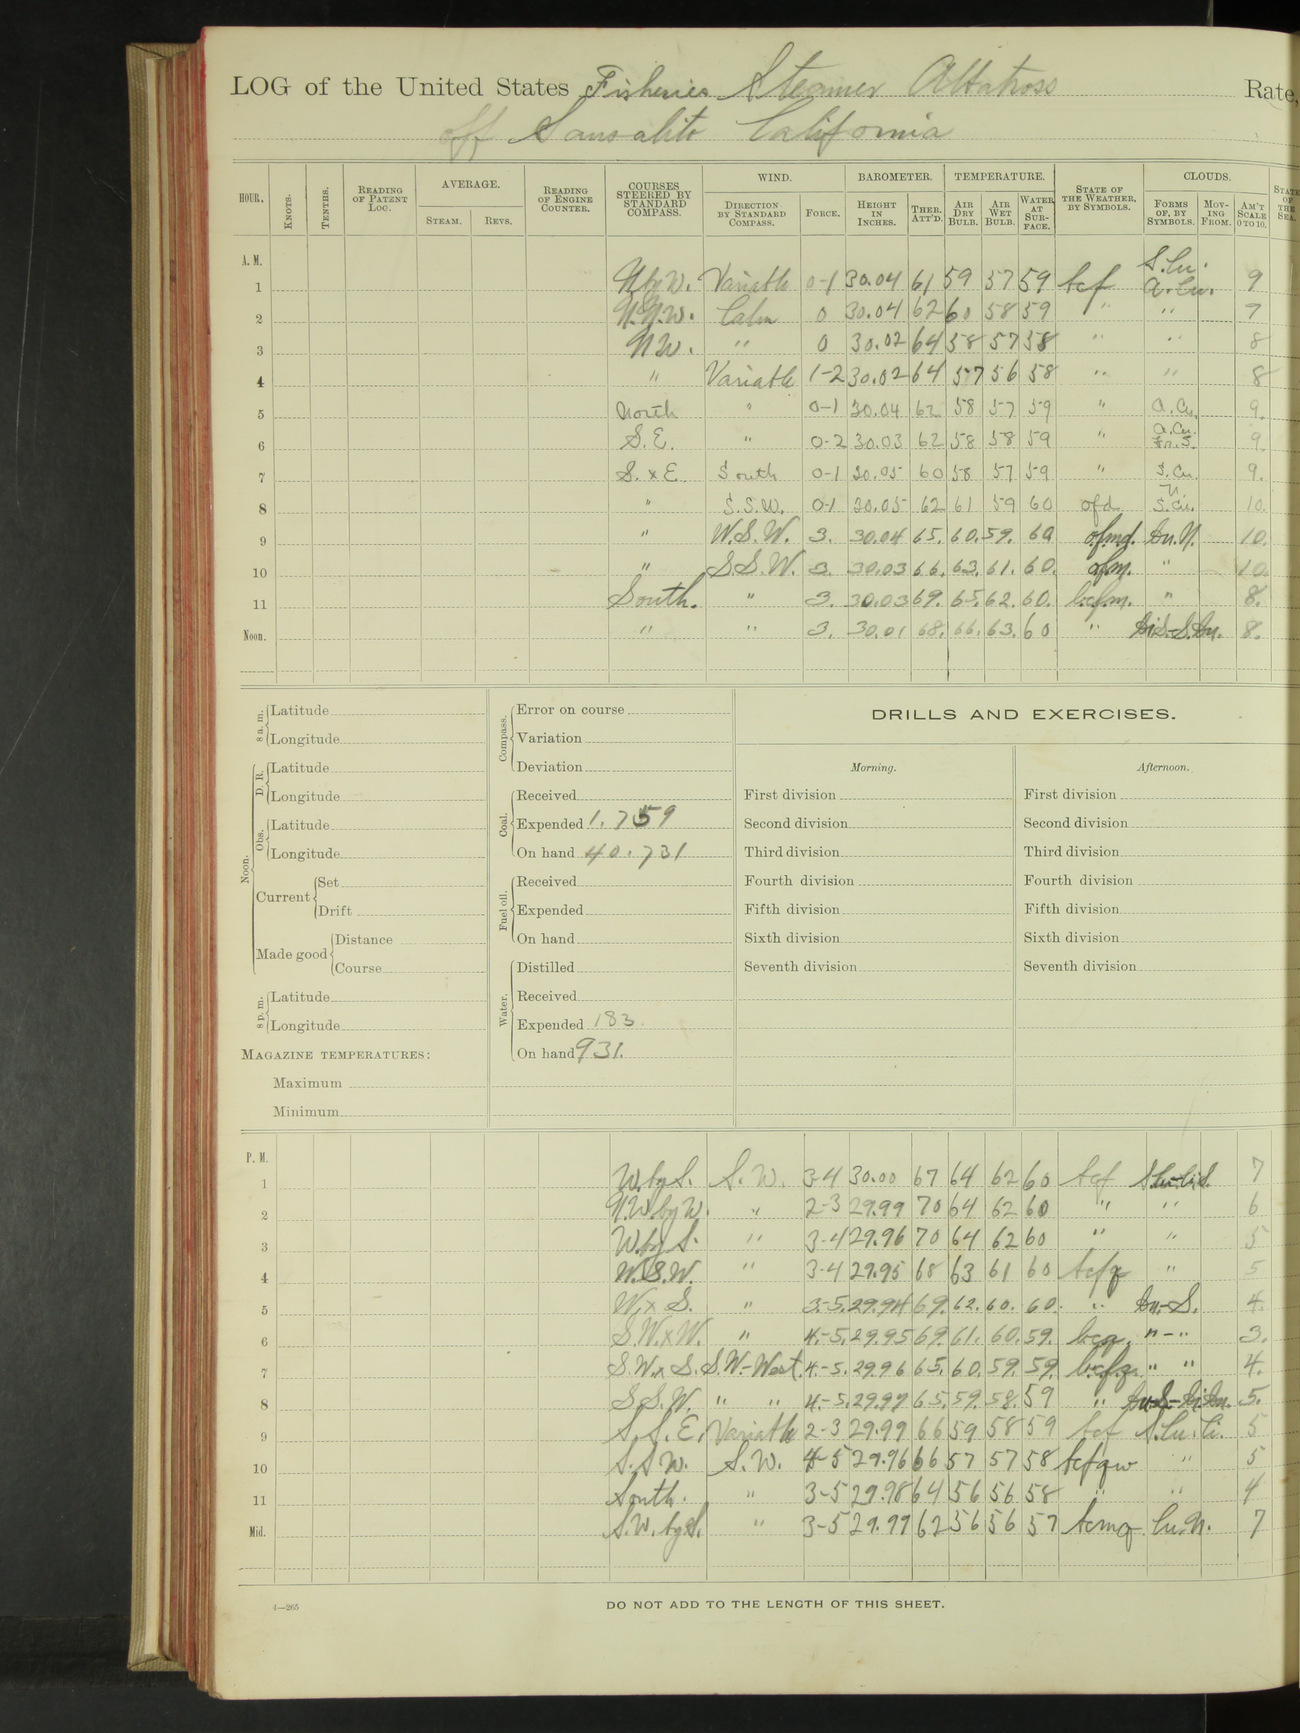 LOG of the United States Fisheries Steamer Albatross Rate,
off Sausalito California
HOUR. KNOTS. TENTHS. READING OF PATENT LOG. AVERAGE. STEAM. REVS. READING OF ENGINE COUNTER. COURSES STEERED BY STANDARD COMPASS. WIND. DIRECTION BY STANDARD COMPASS. FORCE. BAROMETER. HEIGHT IN INCHES. THER. ATT'D. TEMPERATURE. AIR DRY BULB. AIR WET BULB. WATER AT SURFACE. STATE OF THE WEATHER, BY SYMBOLS. CLOUDS. FORMS OF, BY SYMBOLS. MOVING FROM. AM'T SCALE 0 TO 10. STATE OF THE SEA.
A. M.
1 N by W. Variable 0-1 30.04 61 59 57 59 bcf S.Cu. A.Cu. 9
2 N.N.W. Calm 0 30.04 62 60 58 59 " " 7
3 NW. " 0 30.02 64 58 57 58 " " 8
4 " Variable 1-2 30.02 64 57 56 58 " " 8
5 North " 0-1 30.04 62 58 57 59 " A.Cu. 9.
6 S.E. " 0-2 30.03 62 58 58 59 " A.Cu. Fr.S. 9.
7 S. x E South 0-1 30.05 60 58 57 59 " S.Cu. 9.
8 " S.S.W. 0-1 30.05 62 61 59 60 ofd N. S.Cu. 10.
9 " W.S.W. 3. 30.04 65. 60. 59. 60 ofmd. Cu.N. 10.
10 " S.S.W. 3. 30.03 66. 63. 61. 60. ofm. " 10.
11 South. " 3. 30.03 69. 65. 62. 60. bcfm. " 8.
Noon. " " 3. 30.01 68. 66. 63. 60 " Ci.S.-S.Cu. 8.
8 a. m. Latitude
Longitude
Noon. D. R. Latitude
Longitude
Obs. Latitude
Longitude
Current Set
Drift
Made good Distance
Course
8 p. m. Latitude
Longitude
MAGAZINE TEMPERATURES:
Maximum
Minimum
Compass. Error on course
Variation
Deviation
Coal. Received
Expended 1.759
On hand 40.731
Fuel oil. Received
Expended
On hand
Water. Distilled
Received
Expended 183
On hand 931.
DRILLS AND EXERCISES.
Morning.
First division
Second division
Third division
Fourth division
Fifth division
Sixth division
Seventh division
Afternoon.
First division
Second division
Third division
Fourth division
Fifth division
Sixth division
Seventh division
P. M.
1 W. by S. S.W. 3-4 30.00 67 64 62 60 bcf S.Cu-Ci.S. 7
2 N.W. by W. " 2-3 29.99 70 64 62 60 " " 6
3 W. by S. " 3-4 29.96 70 64 62 60 " " 5
4 W.S.W. " 3-4 29.95 68 63 61 60 bcfq " 5
5 W. x S. " 3-5. 29.94 69. 62. 60. 60. " Cu.-S. 4.
6 S.W. x W. " 4-5. 29.95 69. 61. 60. 59. bcq. "-" 3.
7 S.W. x S. S.W.-West. 4-5. 29.96 65. 60. 59. 59. bcfq. " " 4.
8 S.S.W. " " 4-5. 29.97 65. 59. 58. 59 " Cu-S-Ci.Cu. 5.
9 S.S.E. Variable 2-3 29.99 66 59 58 59 bcf S.Cu. Ci. 5
10 S.S.W. S.W. 4-5 29.96 66 57 57 58 bcfqw " 5
11 South. " 3-5 29.98 64 56 56 58 " " 4
Mid. S.W. by S. " 3-5 29.97 62 56 56 57 bcmq Cu.N. 7
4—265
DO NOT ADD TO THE LENGTH OF THIS SHEET.